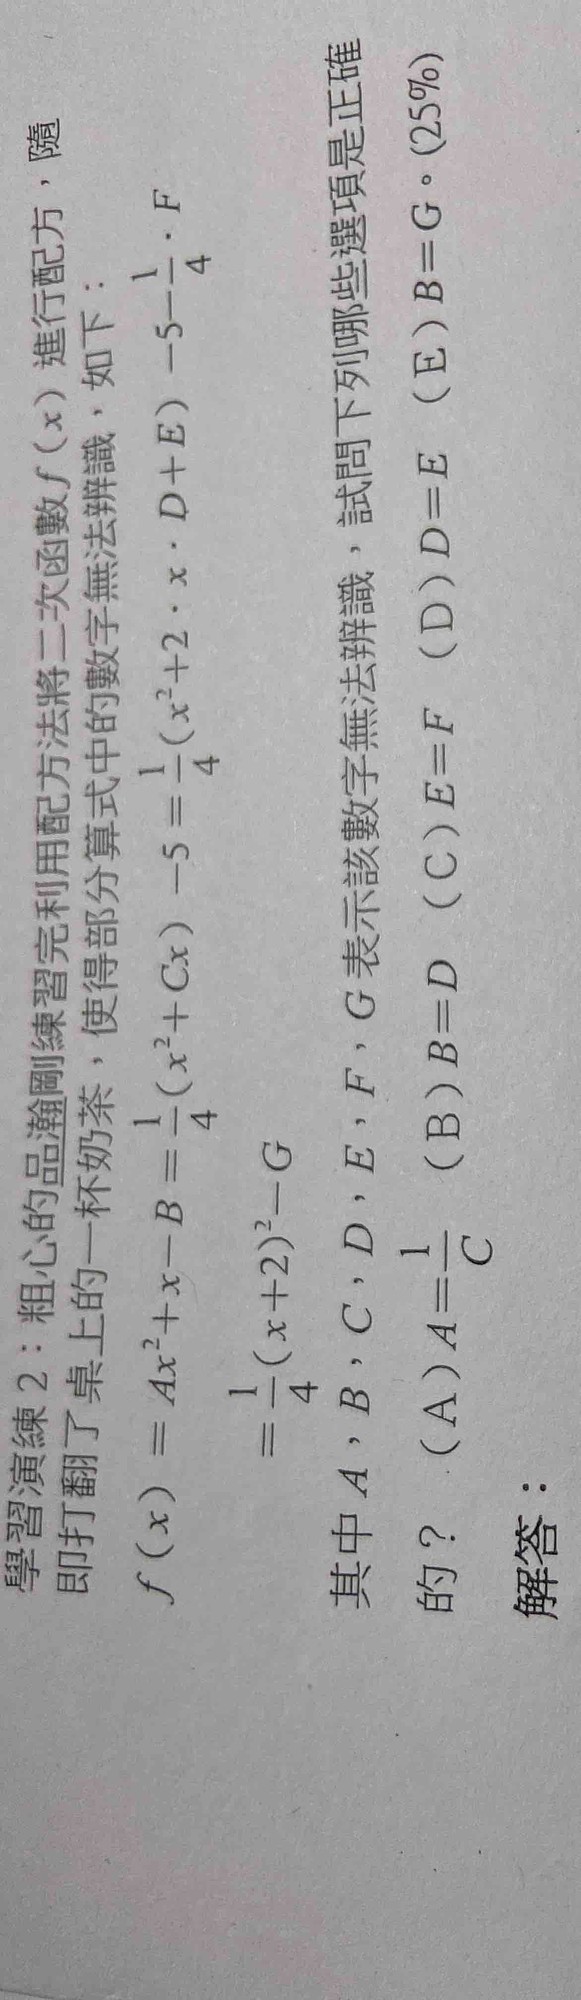 學習演練 2：粗心的品瀚剛練習完利用配方法將二次函數 f(x) 進行配方，隨
即打翻了桌上的一杯奶茶，使得部分算式中的數字無法辨識，如下：
f(x) = Ax²+x−B = \frac{1}{4}(x²+Cx) −5 = \frac{1}{4}(x²+2·x·D+E) −5−\frac{1}{4}·F
= \frac{1}{4}(x+2)²−G
其中 A，B，C，D，E，F，G 表示該數字無法辨識，試問下列哪些選項是正確
的？ (A) A=\frac{1}{C} (B) B=D (C) E=F (D) D=E (E) B=G。(25%)
解答：